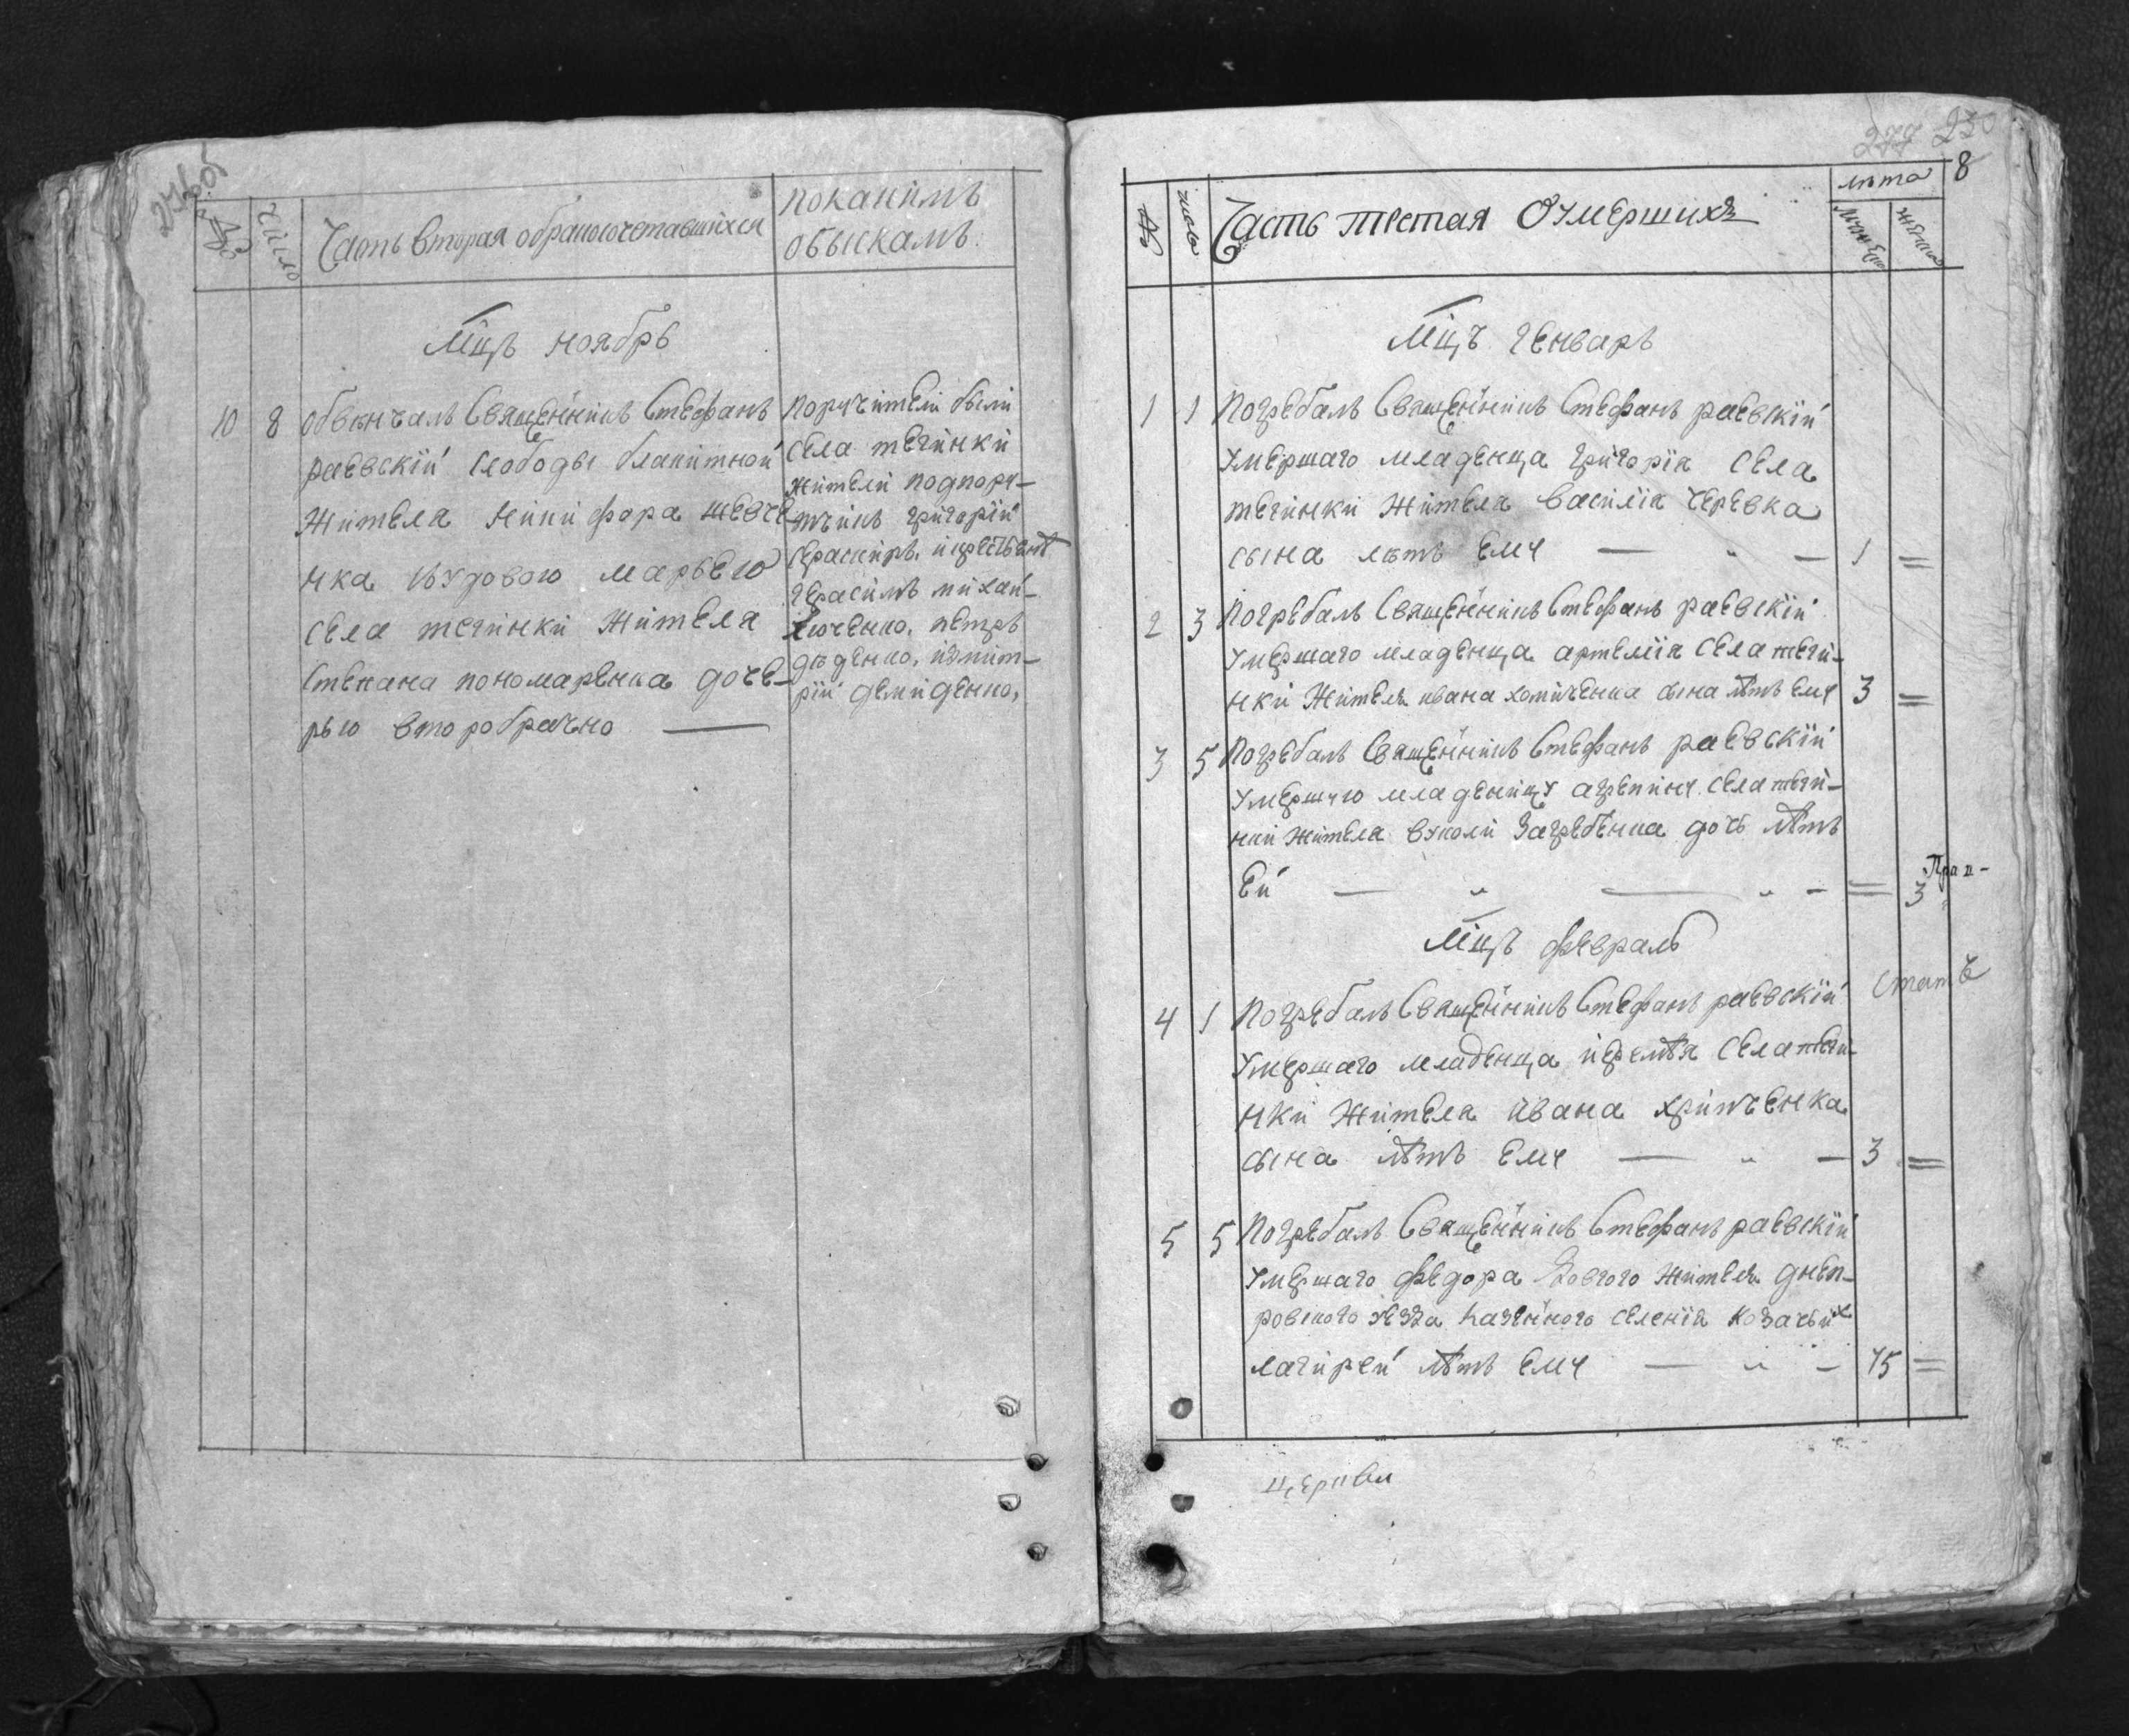 №
Число
Часть вторая о бракосочетавшихся
по какимъ
обыскамъ
Мцъ ноябрь
10 8 обвѣнчалъ Священникъ Стефанъ
раевскій слободы блакитной
жителя никифора шевче-
нка вдовою марьею
села тегинки жителя
Степана пономаренка доче-
рью второбрачно
поручители были
села тегинки
жители подпору-
тчикъ григорій
герасимъ михай-
люченко, петръ
дѣденко, измит-
рій демиденко,
277 230
8
№
число
Часть третая О Умершихъ
лѣта
мужеска
женска
Мцъ генварь
1 1 Погребалъ Священникъ Стефанъ раевскій
умершаго младенца григорія села
тегинки жителя василія черевка
сына лѣтъ ему — " — 1 =
2 3 Погребалъ Священникъ Стефанъ раевскій
умершаго младенца артемія села теги-
нки жителя ивана хомиченка сына лѣтъ ему 3 =
3 5 Погребалъ Священникъ Стефанъ раевскій
умершую младеницу агрепину села теги-
нки жителя вуколи Загребенка дочь лѣтъ
Ей — " — " — = 3
Мцъ февраль
4 1 Погребалъ Священникъ Стефанъ раевскій
умершаго младенца иеремѣя села теги-
нки жителя ивана хритченка
сына лѣтъ ему — " — 3 =
5 5 Погребалъ Священникъ Стефанъ раевскій
умершаго федора Довгого жителя днеп-
ровского уезда казенного селенія козачьихъ
лагирей лѣтъ ему — " — 45 =
церкви